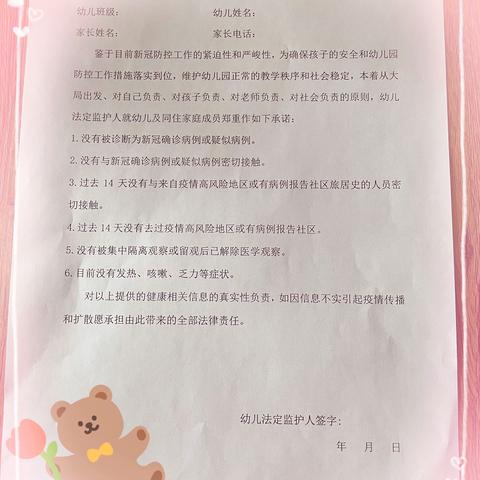 幼儿班级： 幼儿姓名：
家长姓名： 家长电话：
鉴于目前新冠防控工作的紧迫性和严峻性，为确保孩子的安全和幼儿园
防控工作措施落实到位，维护幼儿园正常的教学秩序和社会稳定，本着从大
局出发、对自己负责、对孩子负责、对老师负责、对社会负责的原则，幼儿
法定监护人就幼儿及同住家庭成员郑重作如下承诺：
1.没有被诊断为新冠确诊病例或疑似病例。
2.没有与新冠确诊病例或疑似病例密切接触。
3.过去 14 天没有与来自疫情高风险地区或有病例报告社区旅居史的人员密
切接触。
4.过去 14 天没有去过疫情高风险地区或有病例报告社区。
5.没有被集中隔离观察或留观后已解除医学观察。
6.目前没有发热、咳嗽、乏力等症状。
对以上提供的健康相关信息的真实性负责，如因信息不实引起疫情传播
和扩散愿承担由此带来的全部法律责任。
幼儿法定监护人签字：
年 月 日